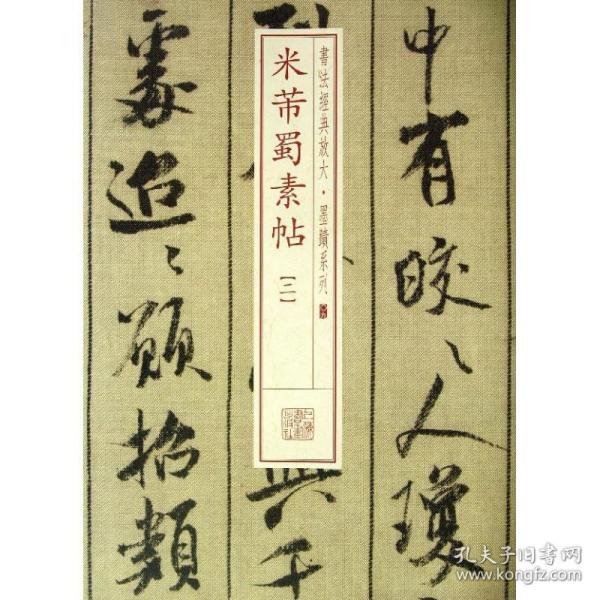 中有皎〻人瓊
書法經典放大·墨蹟系列
米芾蜀素帖
【二】
與千
處迢〻願招類
孔夫子旧书网
www.kongfz.com